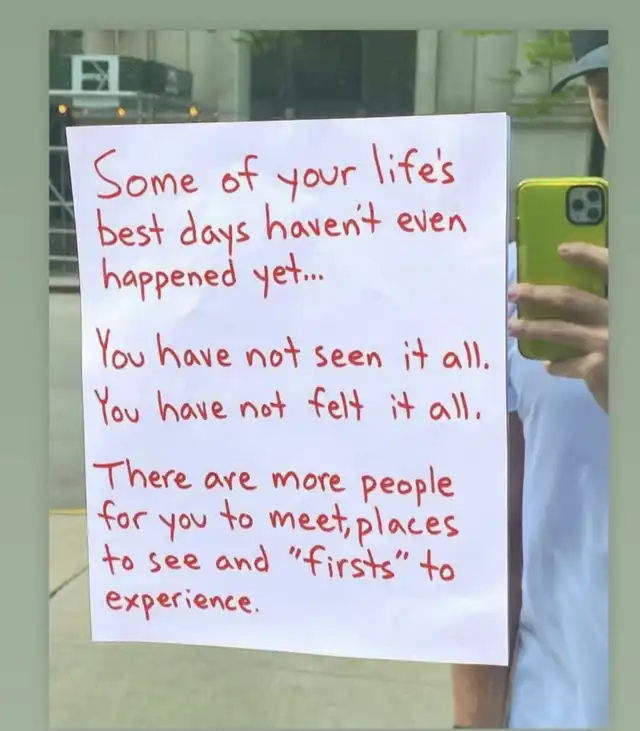 Some of your life's
best days haven't even
happened yet...
You have not seen it all.
You have not felt it all.
There are more people
for you to meet, places
to see and "firsts" to
experience.